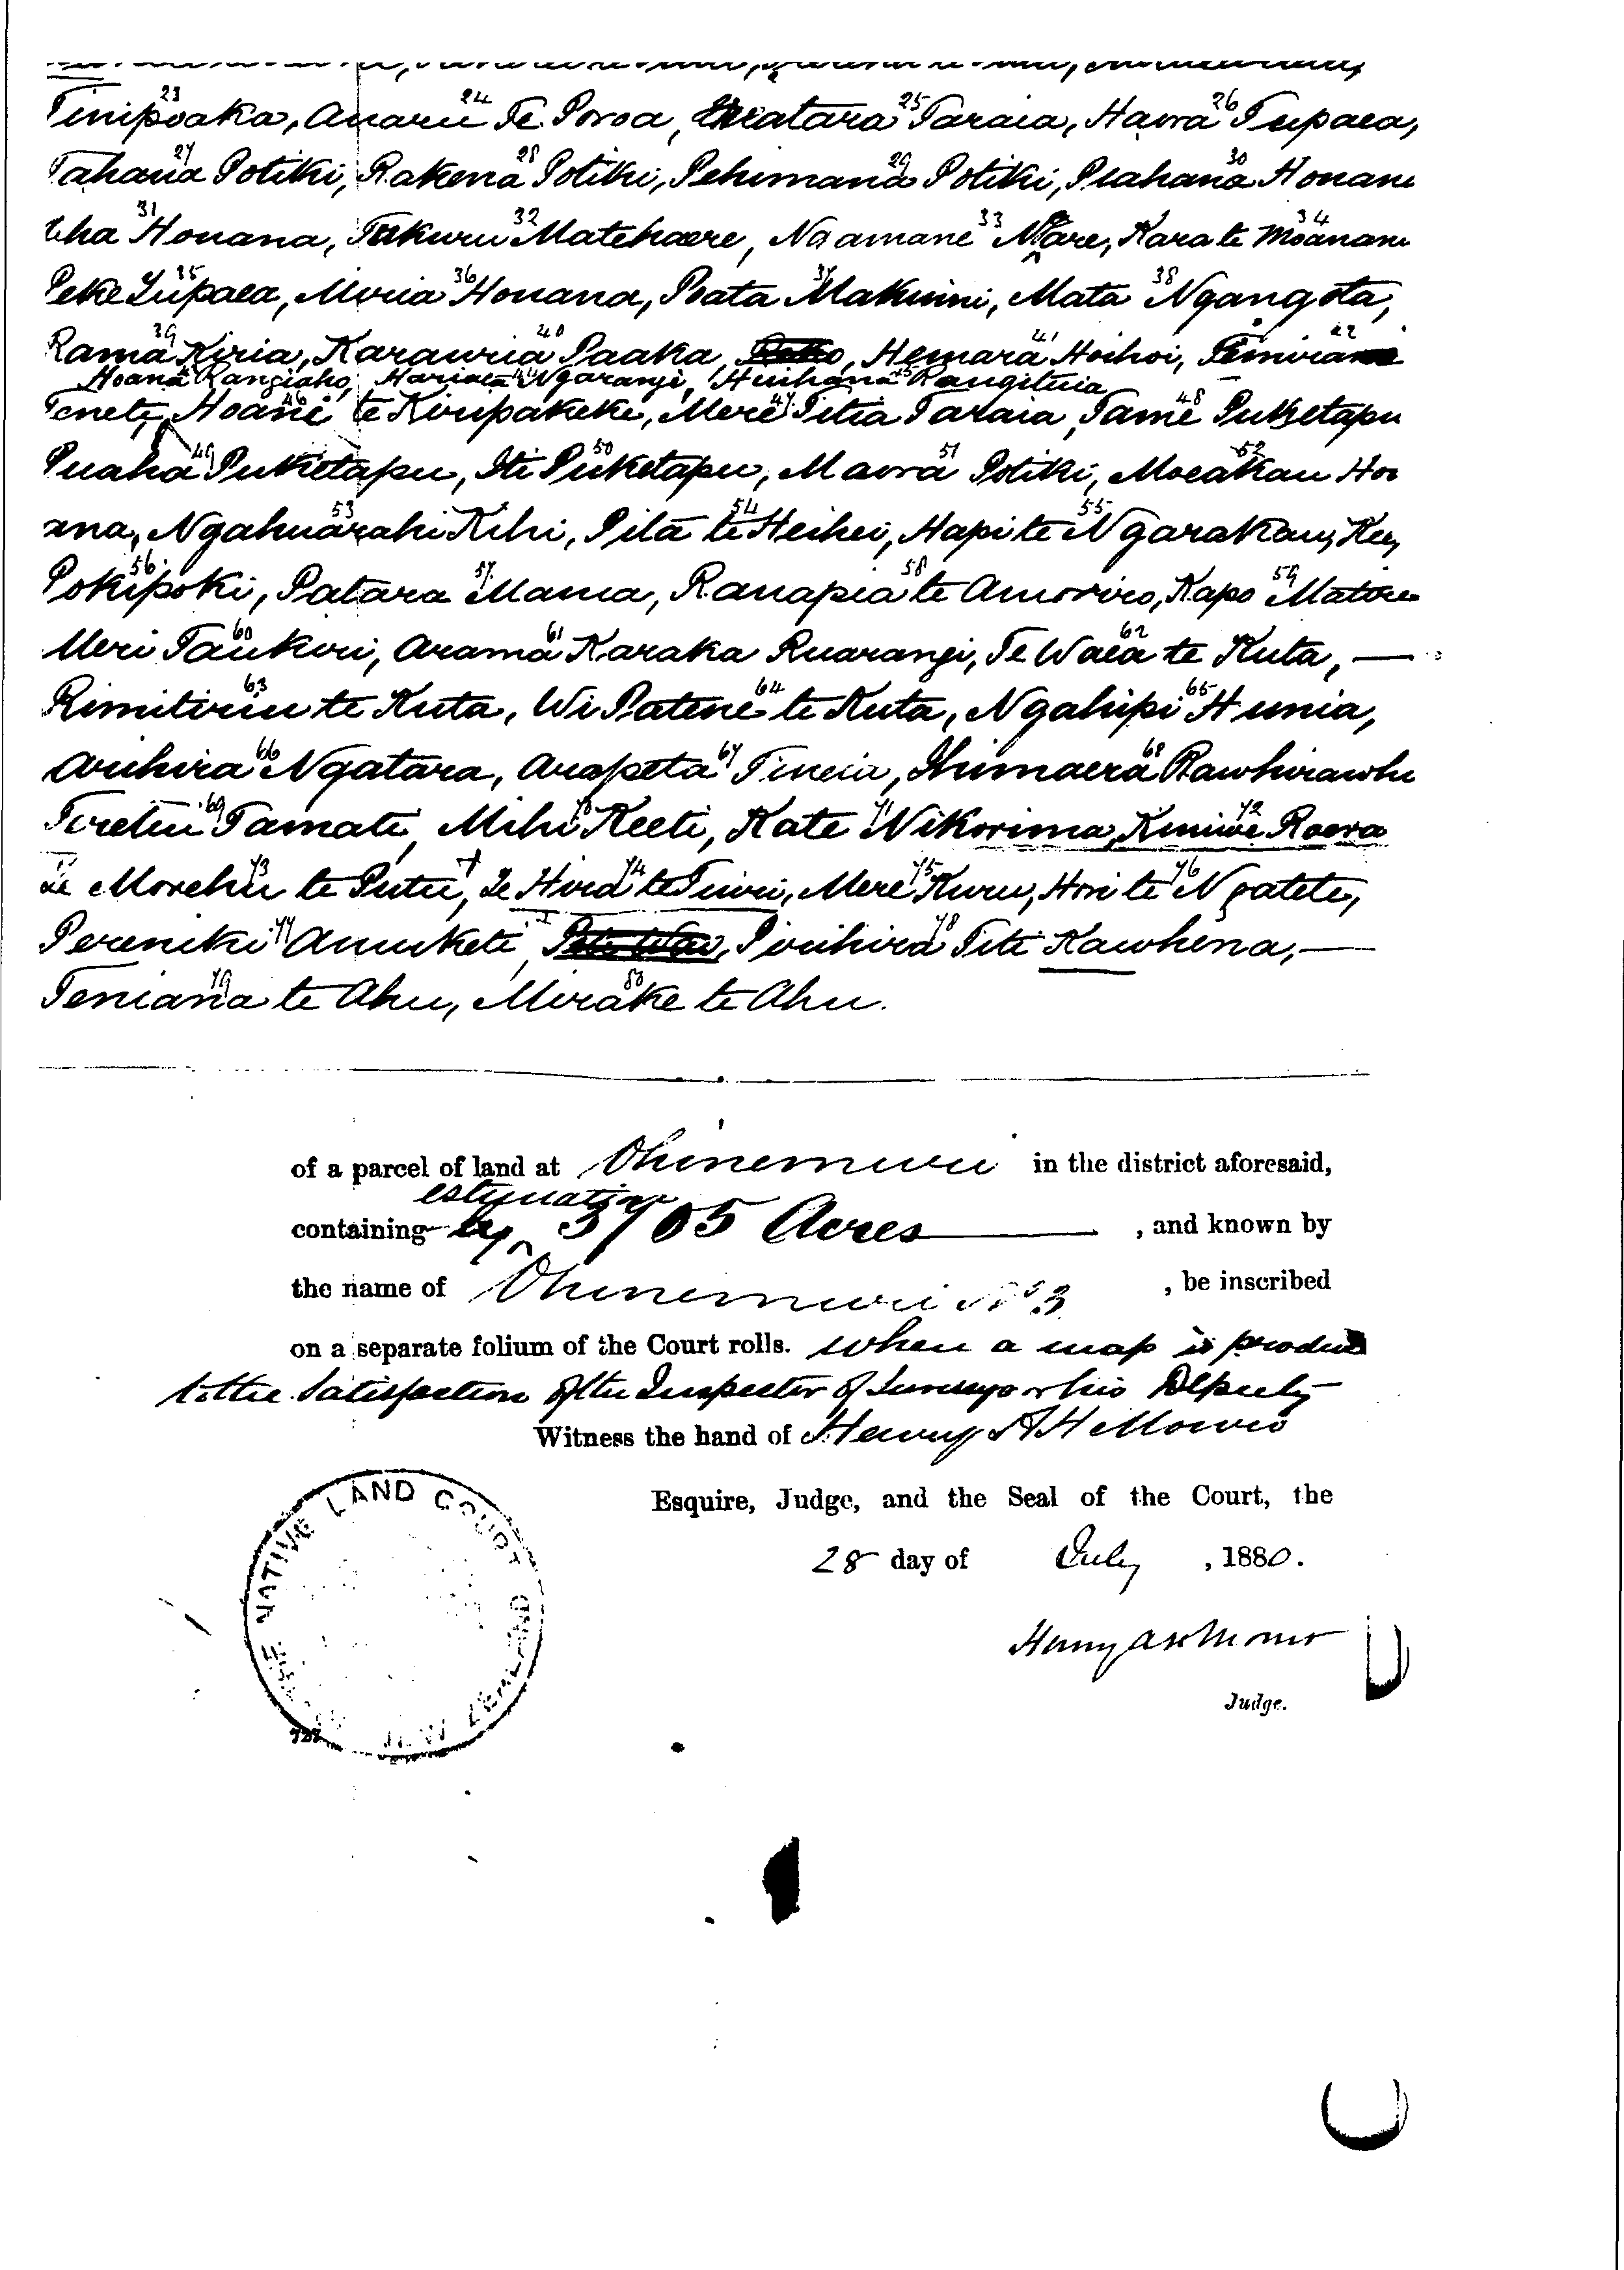 23 24 25 26
Tinipoaka, Anaru Te Poroa, Watara Taraia, Hawra Tupaea,
27 28 29 30
Tahana Potiki, Rakena Potiki, Pehimana Potiki, Peahana Honana
31 32 33 34
Uha Honana, Takuru Matehaere, Ngamane Ngare, Kara te Moanani
35 36 37 38
Peke Tupaea, Moria Honana, Poata Makiwini, Mata Ngangota,
39 40 41 42
Rama Kiria, Karauria Paaka, Hemara Hoihoi,
Hoana Rangiaho, Hariata Ngarangi, Huihana Rangituia
46 47 48
Tenete, Hoani te Kiripakeke, Mere Titia Taraia, Tame Puketapu
49 50 51 52
Puaha Puketapu, Iti Puketapu, Mawra Potiki, Moeakau Hou
53 54 55
ana, Ngahuarahi Kihi, Pita te Heihei, Hapi te Ngarakau,
56 57 58 59
Pokipoki, Patara Mania, Ranapia te Amoriri, Rapo
60 61 62
Meri Taukiri, Arama Karaka Ruarangi, Te Waea te Kuta, —
63 64 65
Rimitiriu te Kuta, Wi Patene te Kuta, Ngahipi Hunia,
66 67 68
Arihira Ngatara, Arapeta Tineia, Himaera Rawhirawhi
69 70 71 72
Teretiu Tamati, Mihi Keeti, Kate Wikorima, Kiniwe Roera
73 74 75 76
te Morehu te Putu, Te Hira te Tuiri, Mere Kuru, Hori te Ngatete,
77 78
Pereniki Anuiketi, Pirihira Titi Kawhena, —
79 80
Teniana te Ahu, Mirake te Ahu.
of a parcel of land at Ohinemuri in the district aforesaid,
estimation
containing by 3705 Acres , and known by
the name of Ohinemuri No 3 , be inscribed
on a separate folium of the Court rolls. when a map is produced
to the Satisfaction of the Inspector of Surveys or his Deputy
Witness the hand of Henry A H Monro
Esquire, Judge, and the Seal of the Court, the
28 day of July , 1880.
Henry A H Monro
Judge.
THE NATIVE LAND COURT OF NEW ZEALAND